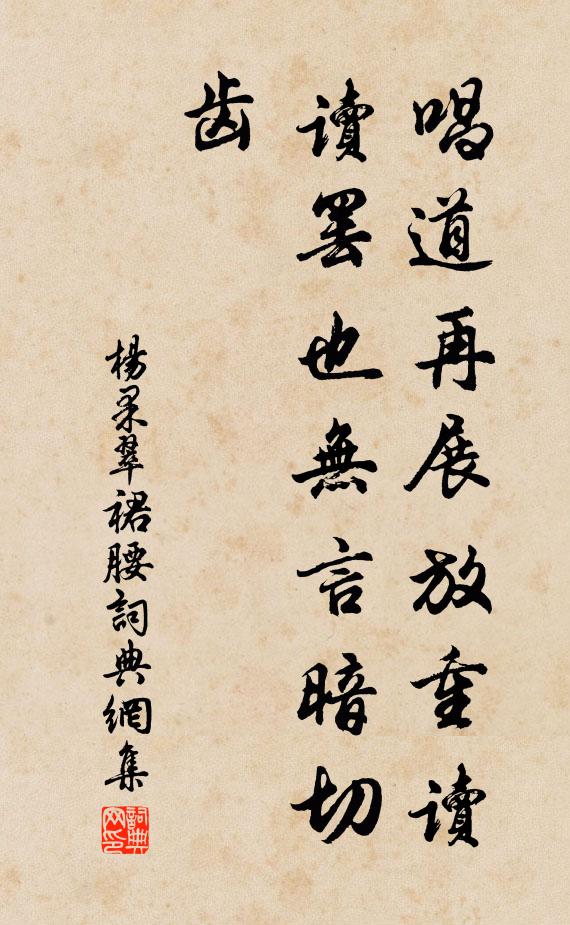 唱道再展放重讀
讀罢也無言暗切
齿
楊果翠裙腰詞典網集
詞典網印